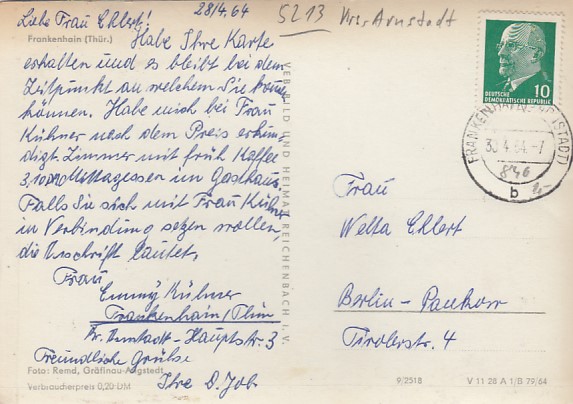 Liebe Frau Ehlert! 28/4.64
Frankenhain (Thür.)
Habe Ihre Karte
erhalten und es bleibt bei dem
Zeitpunkt an welchem Sie kommen
können. Habe mich bei Frau
Kühner nach dem Preis erkun
digt. Zimmer mit früh Kaffee
3,10 DM Mittagessen im Gasthaus.
Falls Sie sich mit Frau Kühner
in Verbindung setzen wollen,
die Anschrift lautet.
Frau
Emmy Kühner
Frankenhain/Thür
Kr. Arnstadt-Hauptstr. 3
Freundliche Grüße
Ihre D. Job
Foto: Remd, Gräfinau-Angstedt
Verbraucherpreis 0,20 DM
VERL. BILD UND HEIMAT REICHENBACH I. V.
5213 Krs. Arnstadt
10
DEUTSCHE
DEMOKRATISCHE REPUBLIK
FRANKENHAIN (ARNSTADT)
30.4.64.-7
b
Frau
Welta Ehlert
Berlin-Pankow
Tirolerstr. 4
9/2518
V 11 28 A 1/B 79/64